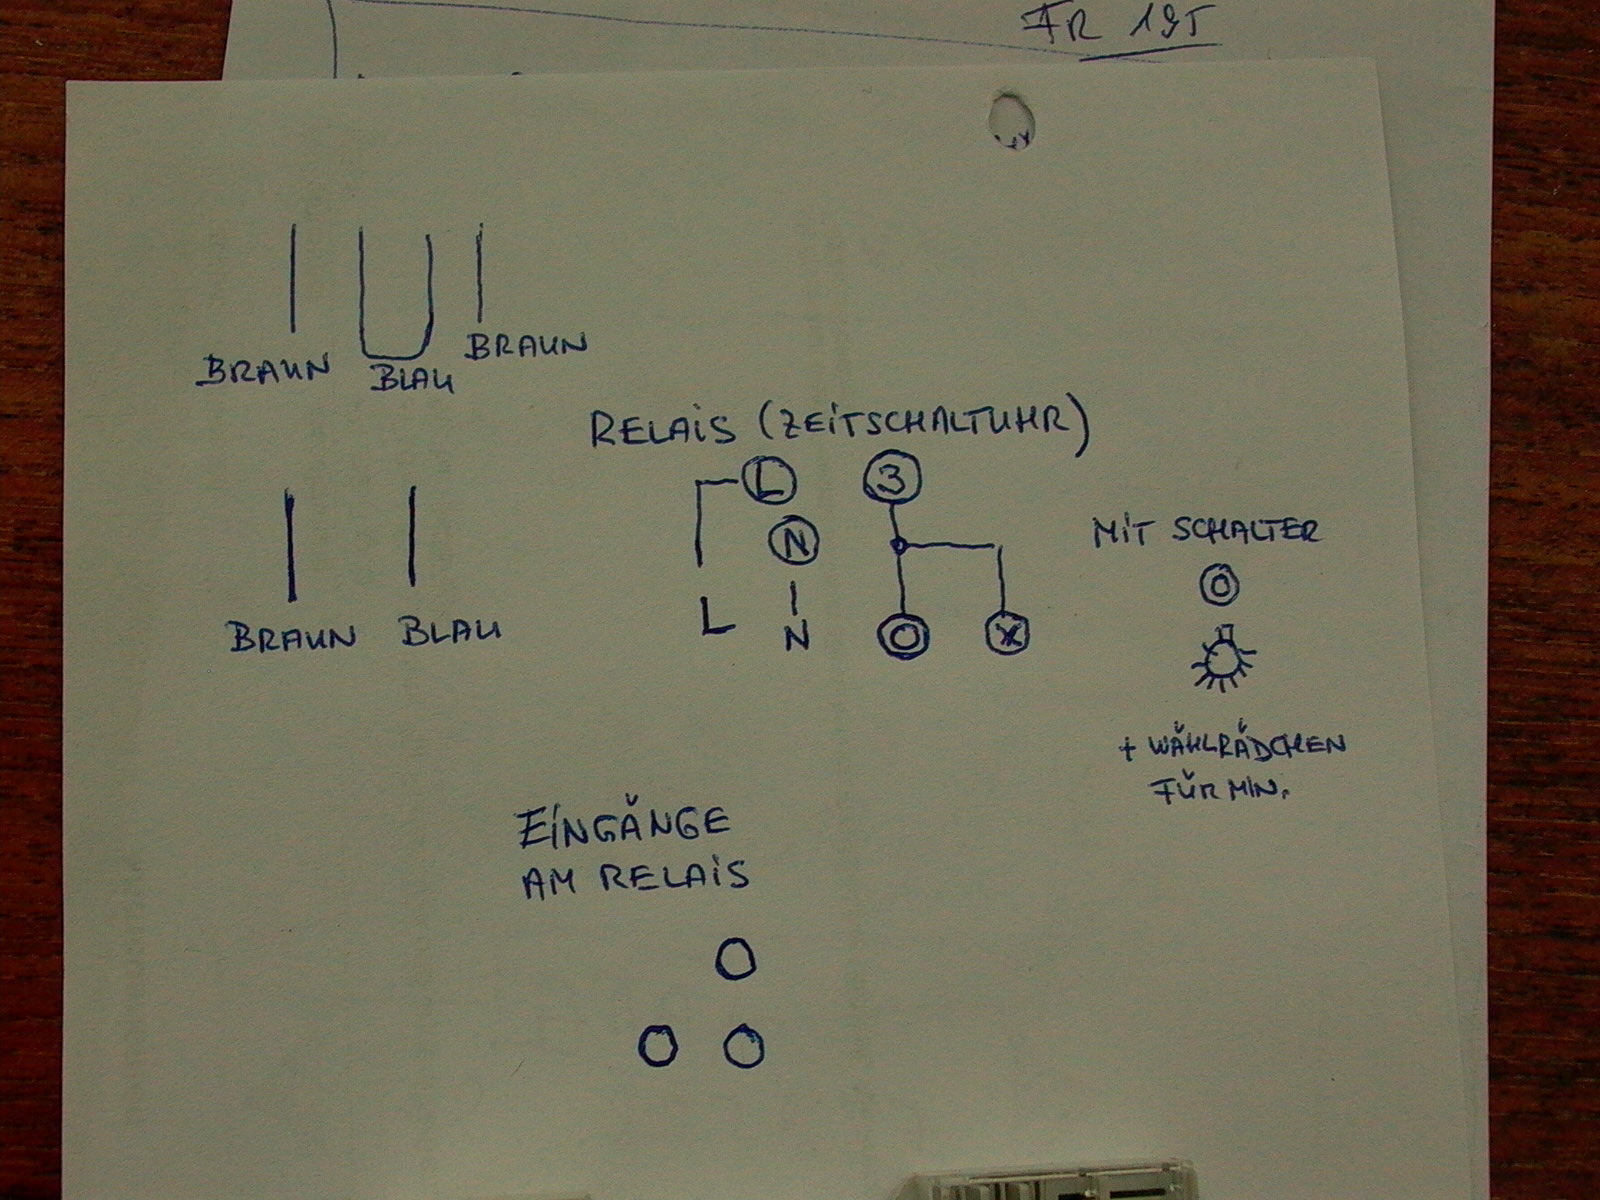 FR 195
BRAUN BLAU BRAUN
RELAIS (ZEITSCHALTUHR)
L 3
N
MIT SCHALTER
BRAUN BLAU
L N
+ WÄHLRÄDCHEN
FÜR MIN.
EINGÄNGE
AM RELAIS